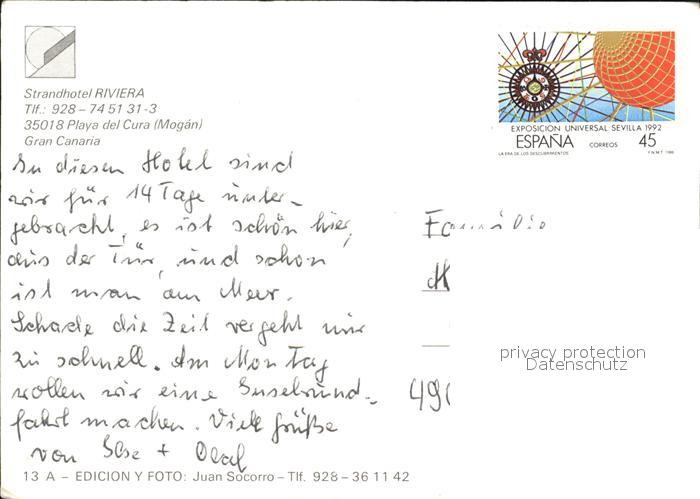 Strandhotel RIVIERA
Tlf.: 928 – 74 51 31-3
35018 Playa del Cura (Mogán)
Gran Canaria
In diesen Hotel sind
wir für 14 Tage unter-
gebracht, es ist schön hier,
aus der Tür und schon
ist man am Meer.
Schade die Zeit vergeht nur
zu schnell. Am Montag
wollen wir eine Inselrund-
fahrt machen. Viele Grüße
von Ilse + Olaf
EXPOSICION UNIVERSAL SEVILLA 1992
ESPAÑA CORREOS 45
LA ERA DE LOS DESCUBRIMIENTOS F.N.M.T.
Familie
privacy protection
Datenschutz
13 A – EDICION Y FOTO: Juan Socorro – Tlf. 928 – 36 11 42